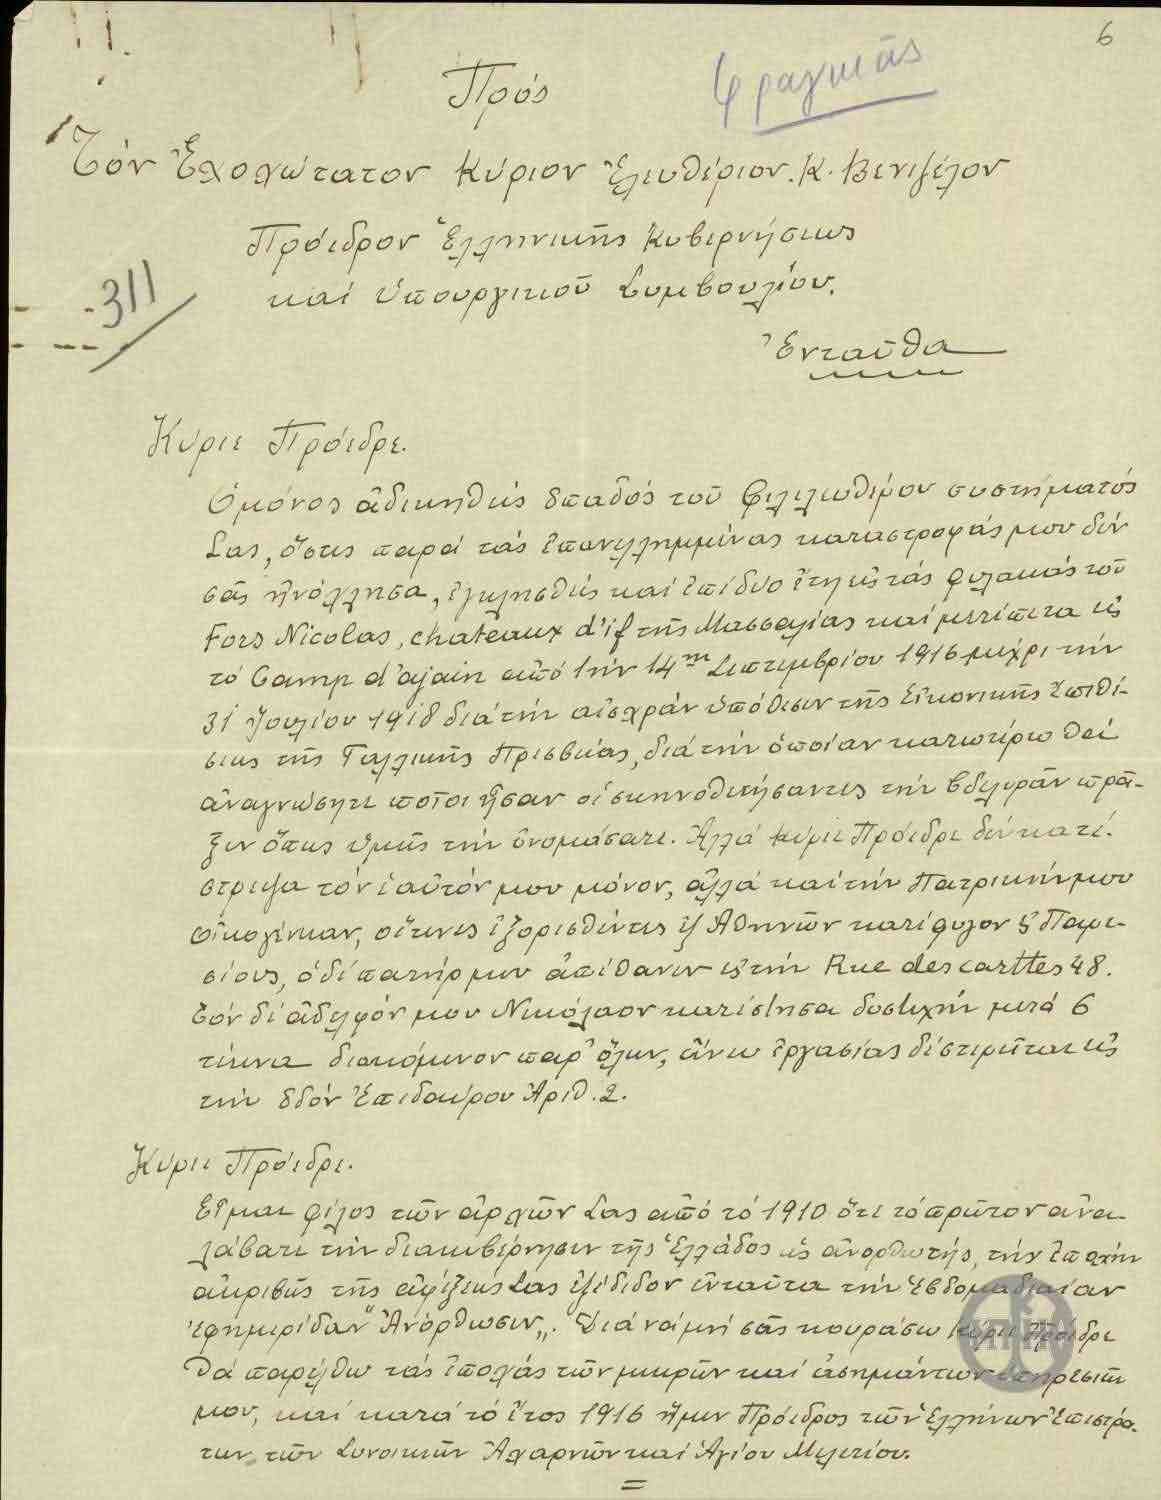 6
Φραγκιᾶς
Πρός
Τόν Ἐξοχώτατον Κύριον Ἐλευθέριον. Κ. Βενιζέλον
Πρόεδρον Ἑλληνικῆς Κυβερνήσεως
καί Ὑπουργικοῦ Συμβουλίου.
311
Ἐνταῦθα
Κύριε Πρόεδρε.
Ὁ μόνος ἀδικηθείς ὀπαδός τοῦ Φιλελευθέρου συστήματός
Σας, ὅστις παρά τάς ἐπανειλημμένας καταστροφάς μου δέν
σᾶς ἠνόχλησα, ἐγκλησθείς καί ἐπί δύο ἔτη εἰς τάς φυλακάς τοῦ
Fors Nicolas, chateaux d'if τῆς Μασσαλίας καί μετέπειτα εἰς
τό Camp d'ajain ἀπό τήν 14ην Σεπτεμβρίου 1916 μέχρι τήν
31 Ἰουλίου 1918 διά τήν αἰσχράν ὑπόθεσιν τῆς Εἰκονικῆς Ἐπιθέ-
σεως τῆς Γαλλικῆς Πρεσβείας, διά τήν ὁποίαν κατωτέρω θά
ἀναγνώσητε ποῖοι ἦσαν οἱ σκηνοθετήσαντες τήν βδελυράν πρᾶ-
ξιν ὅπως ὑμεῖς τήν ὀνομάσατε. Ἀλλά Κύριε Πρόεδρε δέν κατέ-
στρεψα τόν ἑαυτόν μου μόνον, ἀλλά καί τήν Πατρικήν μου
οἰκογένειαν, οἵτινες ἐξορισθέντες ἐξ Ἀθηνῶν κατέφυγον εἰς Παρι-
σίους, ὁ δέ πατήρ μου ἀπέθανεν εἰς τήν Rue descarttes 48.
Τόν δέ ἀδελφόν μου Νικόλαον κατέστησα δυστυχῆ μετά 6
τέκνα διακόμενον παρ' ὅλων, ἄνευ ἐργασίας δέ στερεῖται εἰς
τήν ὁδόν Ἐπιδαύρου Ἀριθ. 2.
Κύριε Πρόεδρε.
Εἶμαι φίλος τῶν ἀρχῶν Σας ἀπό τό 1910 ὅτε τό πρῶτον ἀνε-
λάβατε τήν διακυβέρνησιν τῆς Ἑλλάδος ὡς ἀνορθωτής, τήν ἐποχήν
ἀκριβῶς τῆς ἀφίξεώς Σας ἐξέδιδον ἐνταῦτα τήν Ἑβδομαδιαίαν
ἐφημερίδαν "Ἀνόρθωσιν„. Διά νά μή σᾶς κουράσω Κύριε Πρόεδρε
θά παρέλθω τάς ἐποχάς τῶν μικρῶν καί ἀσημάντων ὑπηρεσιῶν
μου, καί κατά τό ἔτος 1916 ἤμην Πρόεδρος τῶν Ἑλλήνων Ἐπιστρά-
των τῶν Συνοικιῶν Ἀχαρνῶν καί Ἁγίου Μελετίου.
=